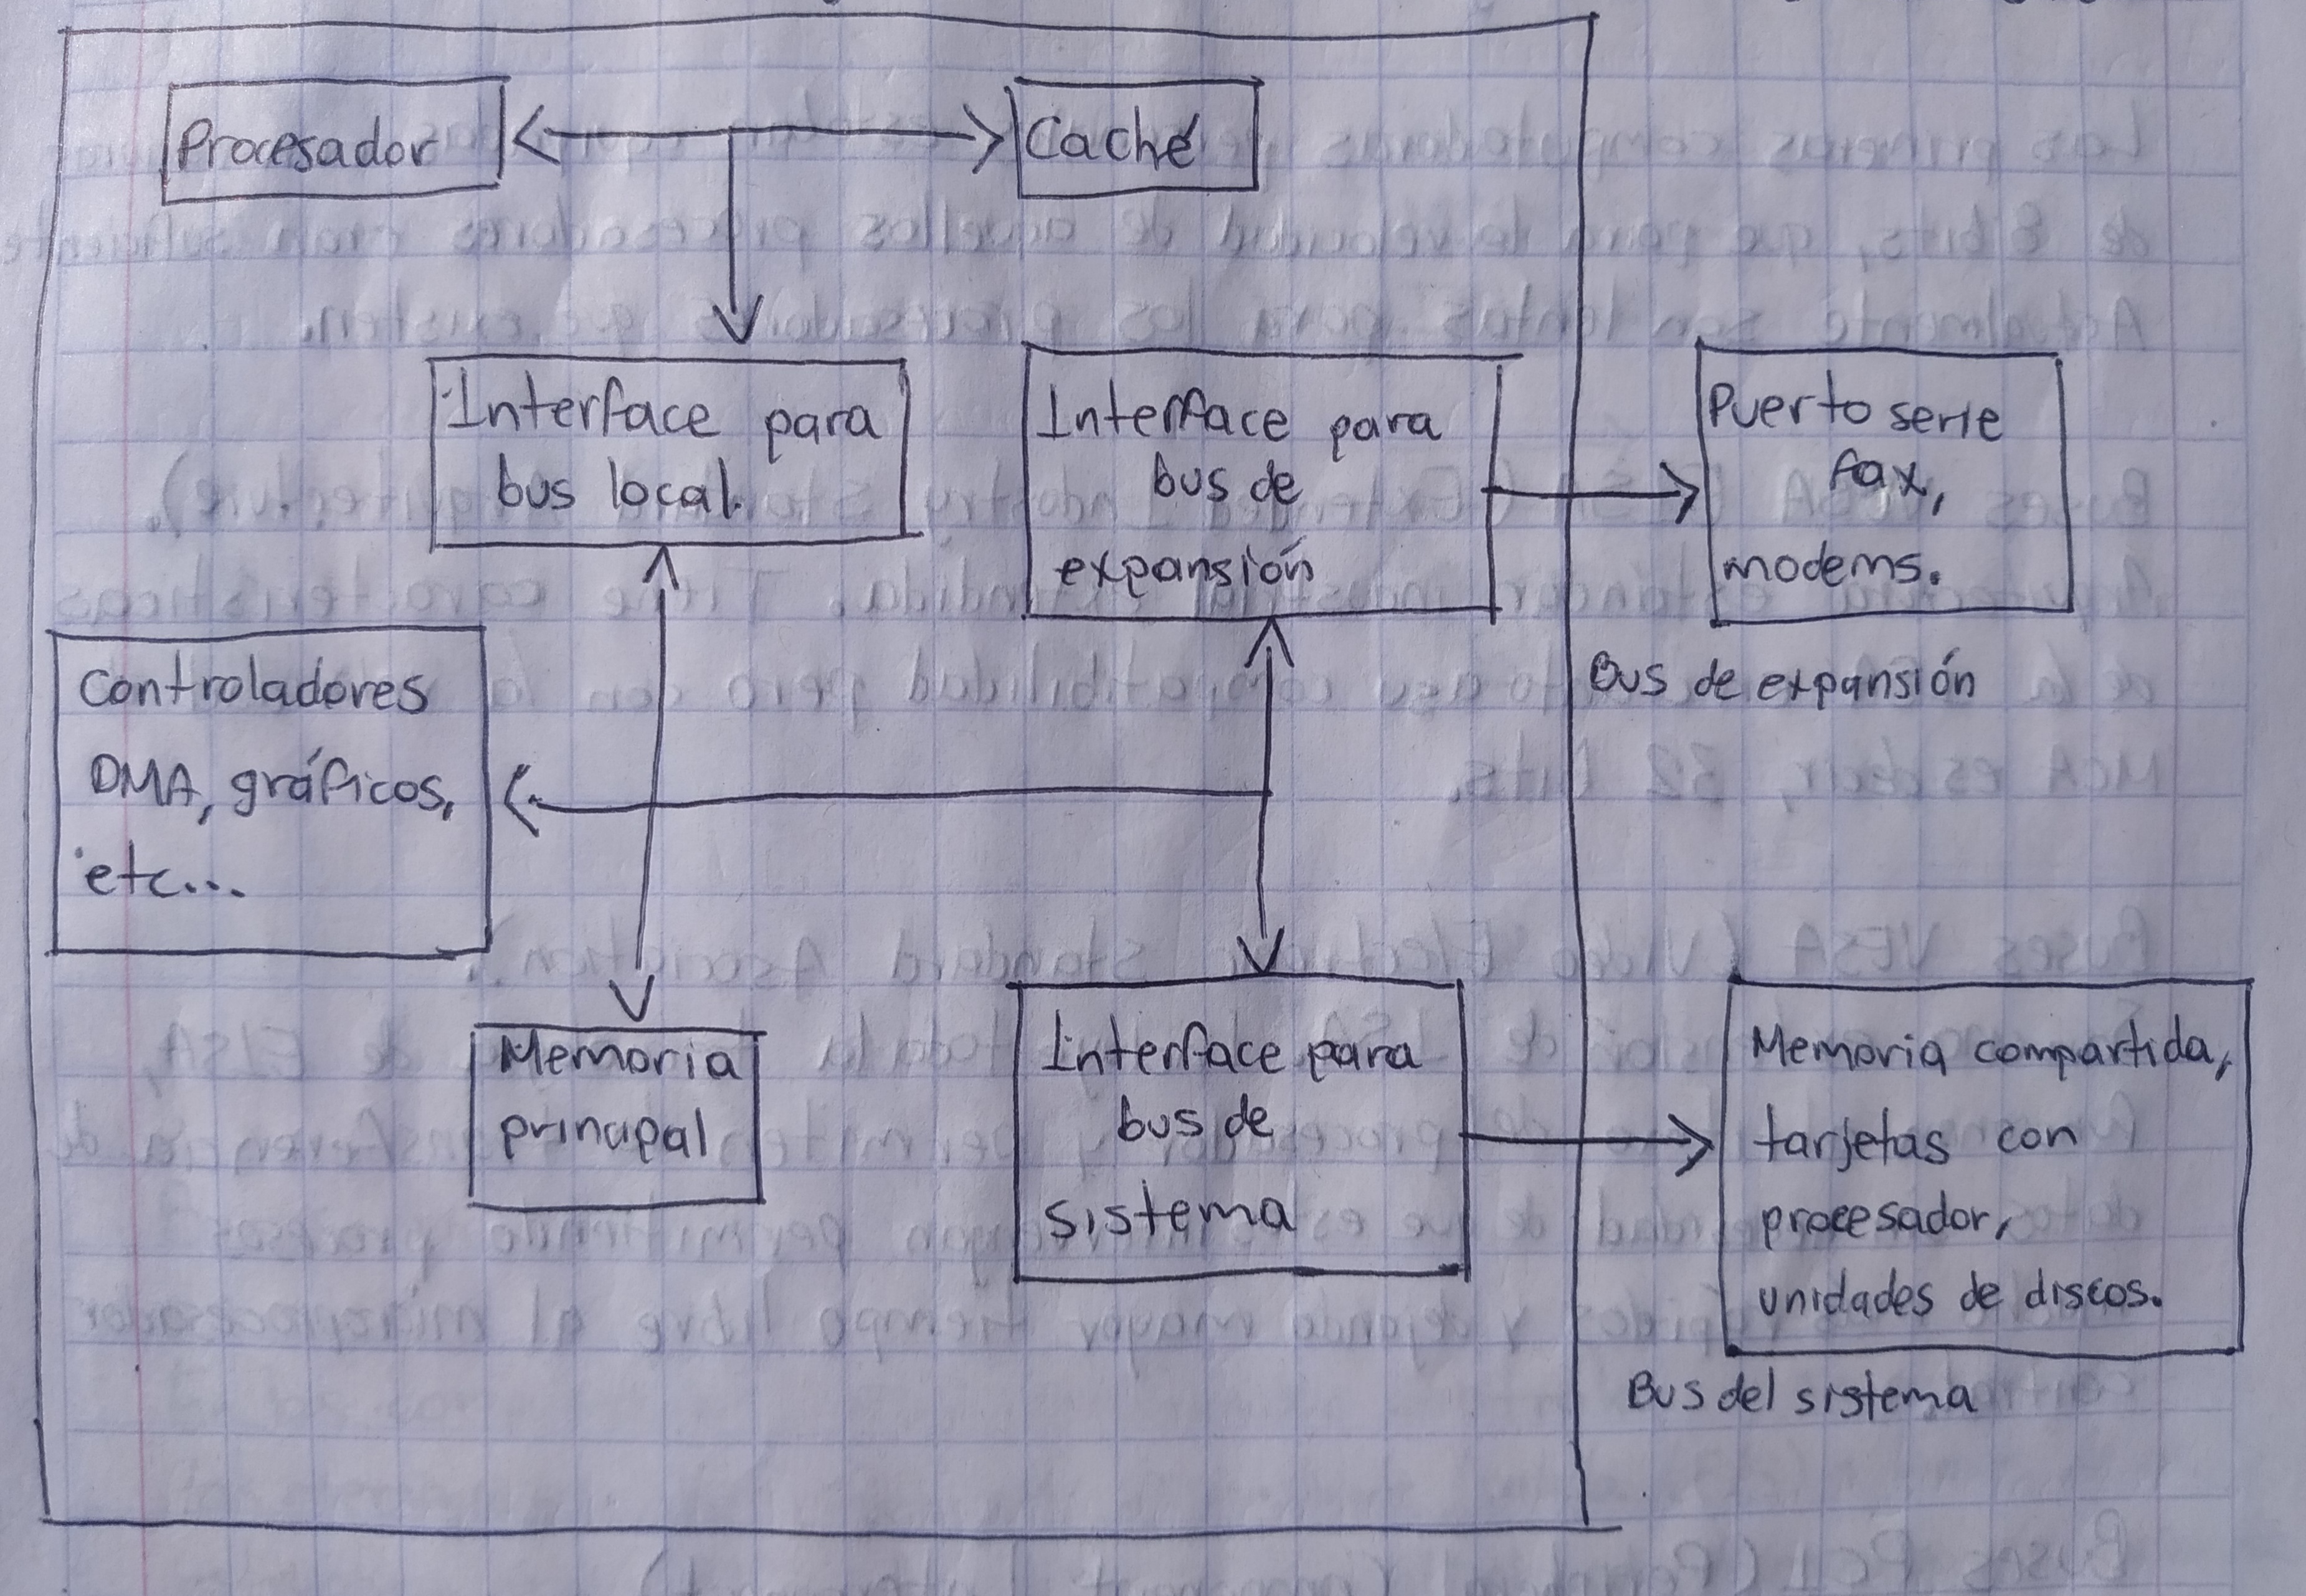 Procesador
Caché
Interface para
bus local.
Interface para
bus de
expansión
Puerto serie
fax,
modems.
Bus de expansión
Controladores
DMA, gráficos,
etc...
Memoria
principal
Interface para
bus de
sistema
Memoria compartida,
tarjetas con
procesador,
unidades de discos.
Bus del sistema